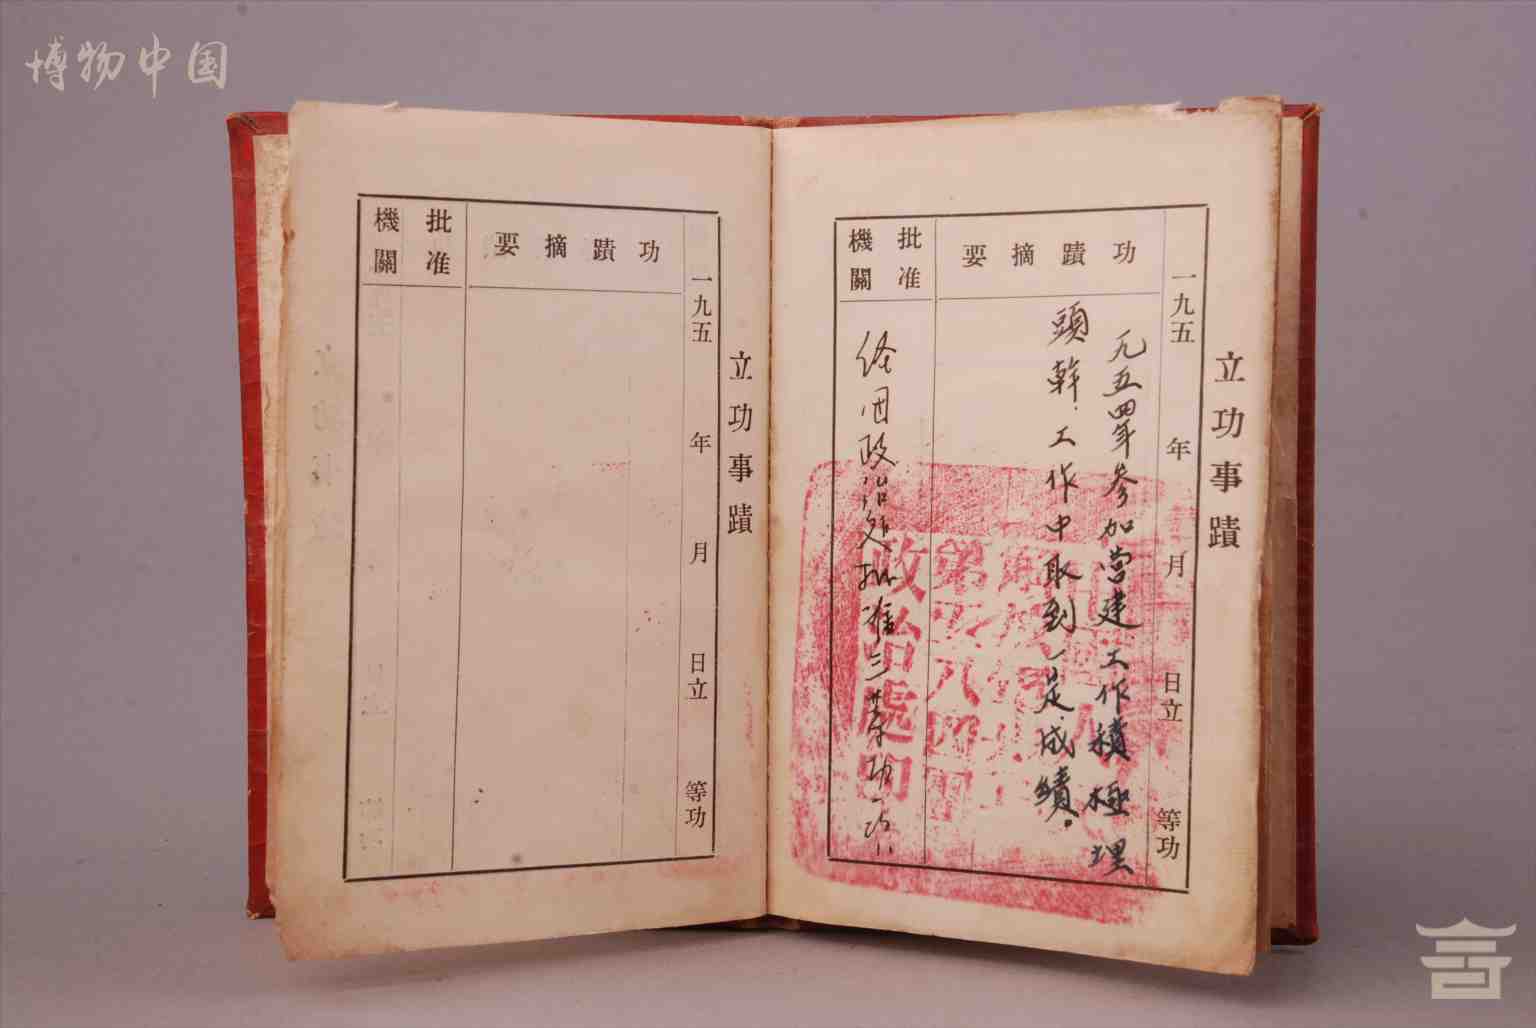 博物中国
立功事蹟
一九五 年 月 日立 等功
功蹟摘要
一九五四年参加营建工作積極埋
頭幹．工作中取到一定成績。
批准機關
经团政治处批准三等功一次
政治處印
立功事蹟
一九五 年 月 日立 等功
功蹟摘要
批准機關